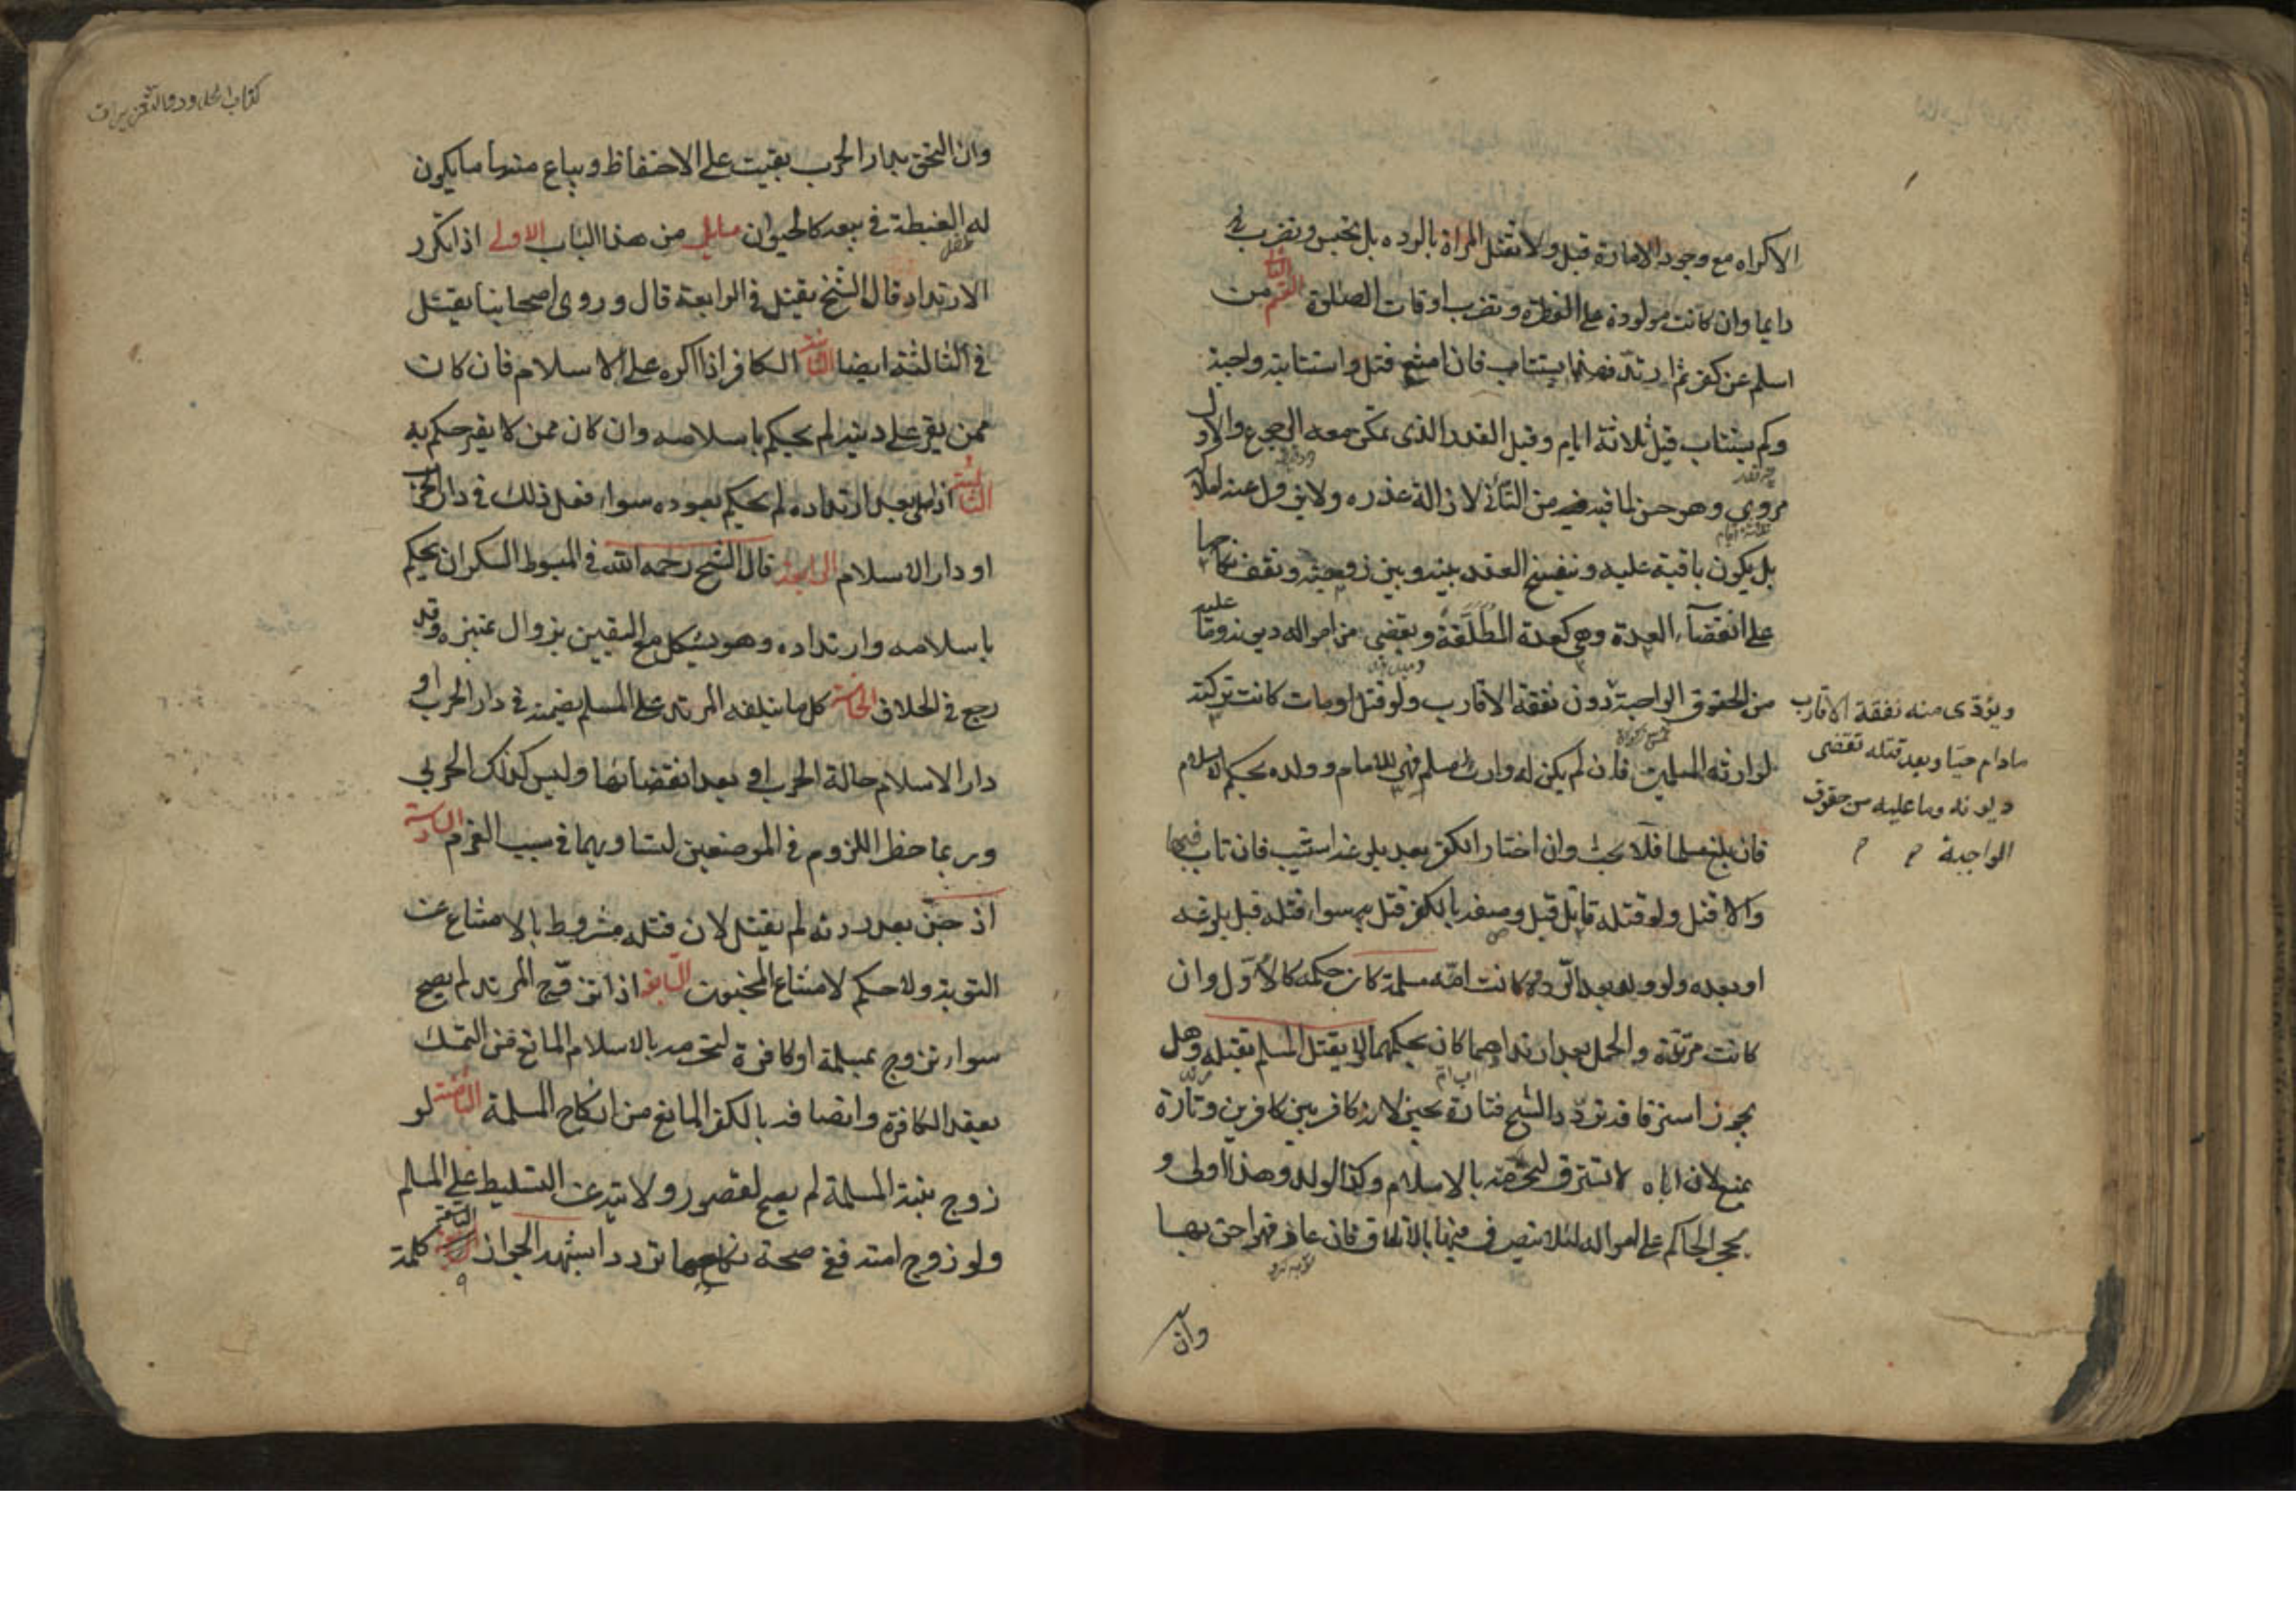 الاكراه مع وجود الامارة قبل ولا تقتل المراة بالردة بل تحبس وتضرب
دايما وان كانت مولودة على الفطرة وتضرب اوقات الصلوة القسم الثانى من
اسلم عن كفر ثم ارتد فهذا يستتاب فان امتنع قتل واستتابته واجبة
وكم يستتاب قيل ثلاثة ايام وقيل القدر الذى يمكن معه الرجوع والاول
مروى وهو حسن لما فيه من التأنى لازالة عذره ولا يزول عنه املاكه
بل يكون باقية عليه وينفسخ العقد بينه وبين زوجته وتقف نكاحها
على انقضآء العدة وهى كعدة المطلقة ويقضى من امواله ديونه وما عليه
من الحقوق الواجبة دون نفقة الاقارب ولو قتل او مات كانت تركته
لوارثه المسلمين فان لم يكن له وارث مسلم فهى للامام وولده بحكم الاسلام
فان بلغ مسلما فلا بحث وان اختار الكفر بعد بلوغه استتيب فان تاب فيها
والا قتل ولو قتله قاتل قبل وصفه بالكفر قتل به سواء قتله قبل بلوغه
او بعده ولو ولد بعد الردة وكانت امه مسلمة كان حكمه كالاول وان
كانت مرتدة والحمل بعد ارتدادهما كان بحكمهما لا يقتل المسلم بقتله وهل
يجوز استرقاقه تردد الشيخ فتارة يجيز لانه كافر بين كافرين وتارة
يمنع لان اباه لا يسترق لتحرمه بالاسلام وكذا الولد وهذا اولى و
يحجر الحاكم على امواله لئلا يتصرف فيها بالاتلاف فان عاد فهو احق بها
وان
ويؤدى منه نفقة الاقارب
مادام حيا وبعد قتله تقضى
ديونه وما عليه من حقوق
الواجبة
كتاب الحدود والتعزيرات
وان التحق بدار الحرب بقيت على الاحتفاظ ويباع منها ما يكون
له الغبطة فى بيعه كالحيوان مسايل من هذا الباب الاولى اذا تكرر
الارتداد قال الشيخ يقتل فى الرابعة قال وروى اصحابنا يقتل
فى الثالثة ايضا الثانية الكافر اذا اكره على الاسلام فان كان
ممن يقر على دينه لم يحكم باسلامه وان كان ممن لا يقر حكم به
الثالثة اذا صلى بعد ارتداده لم يحكم بعوده سواء فعل ذلك فى دار الحرب
او دار الاسلام الرابعة قال الشيخ رحمه الله فى المبسوط السكران يحكم
باسلامه وارتداده وهو يشكل مع اليقين بزوال تميزه وقد
رجع فى الخلاف الخامسة كل ما يتلفه المرتد على المسلم يضمنه فى دار الحرب او
دار الاسلام حالة الحرب او بعد انقضائها وليس كذلك الحربى
وربما خطر اللزوم فى الموضعين لتساويهما فى سبب الغرم السادسة
اذ جن بعد ردته لم يقتل لان قتله مشروط بالامتناع عن
التوبة ولا حكم لامتناع المجنون السابعة اذا تزوج المرتد لم يصح
سواء تزوج بمسلمة او كافرة لتحرمه بالاسلام المانع من التمسك
بعقد الكافرة واتصافه بالكفر المانع من انكاح المسلمة الثامنة لو
زوج بنته المسلمة لم يصح لقصور ولايته عن التسليط على المسلم
ولو زوج امته ففى صحة نكاحها تردد اشبهه الجواز التاسعة كلمة